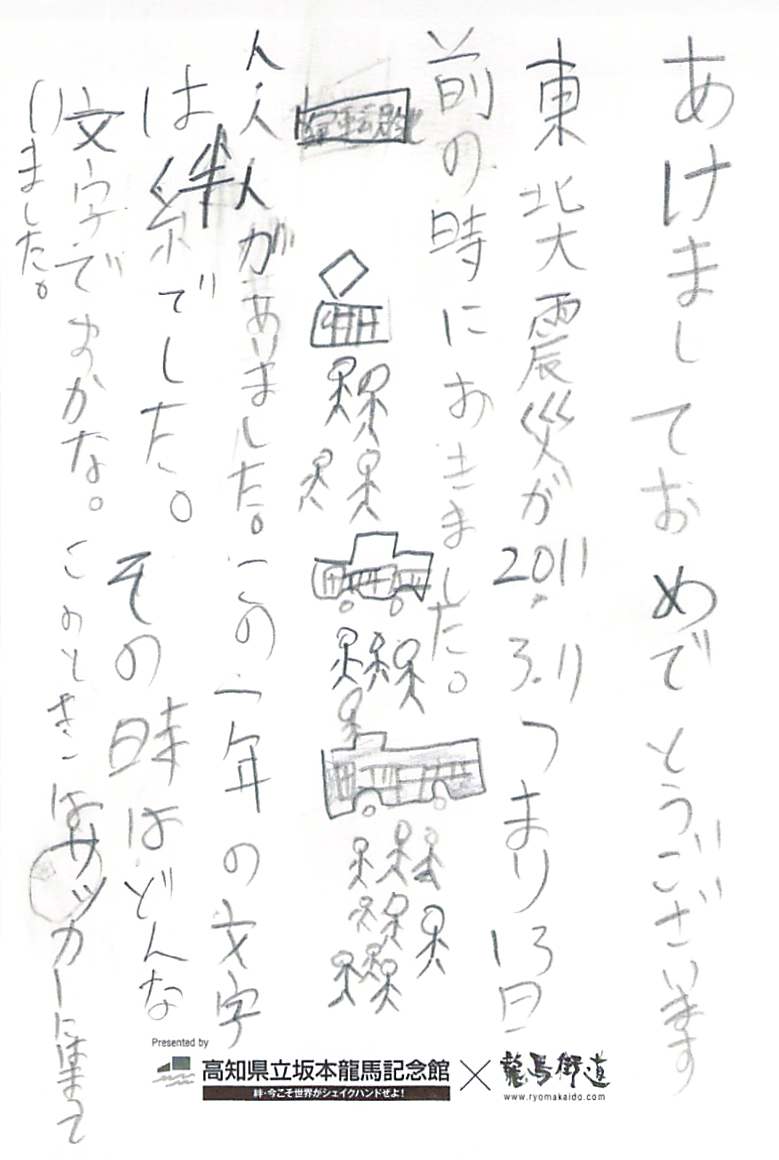 あけましておめでとうございます
東北大震災が2011.3.11つまり13日
前の時におきました。
人人人がありました。この一年の文字
は絆でした。その時はどんな
文字でおかな。このときはサッカーにはまって
いました。
Presented by
高知県立坂本龍馬記念館×龍馬街道
絆・今こそ世界がシェイクハンドせよ!
www.ryomakaido.com